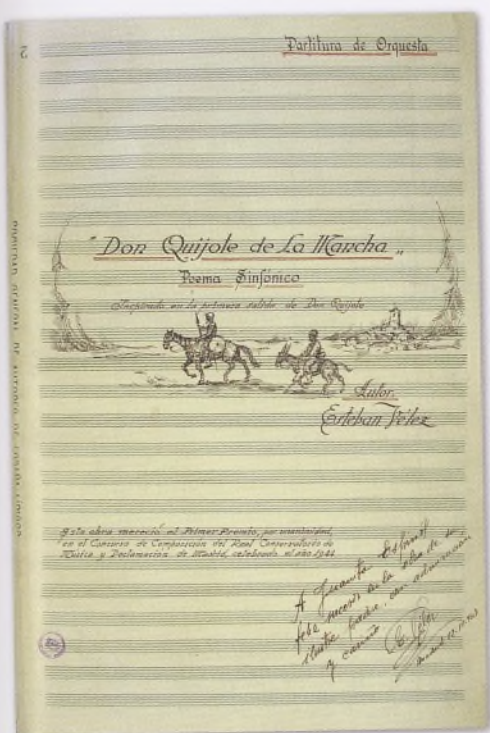 2
Partitura de Orquesta
"Don Quijote de La Mancha„
Poema Sinfónico
Inspirado en la primera salida de Don Quijote
Autor:
Esteban Vélez
Esta obra mereció el Primer Premio, por unanimidad,
en el Concurso de Composición del Real Conservatorio de
Música y Declamación de Madrid, celebrado el año 1944
A Juanita Espinós
de su
ilustre padre, con admiración
y cariño